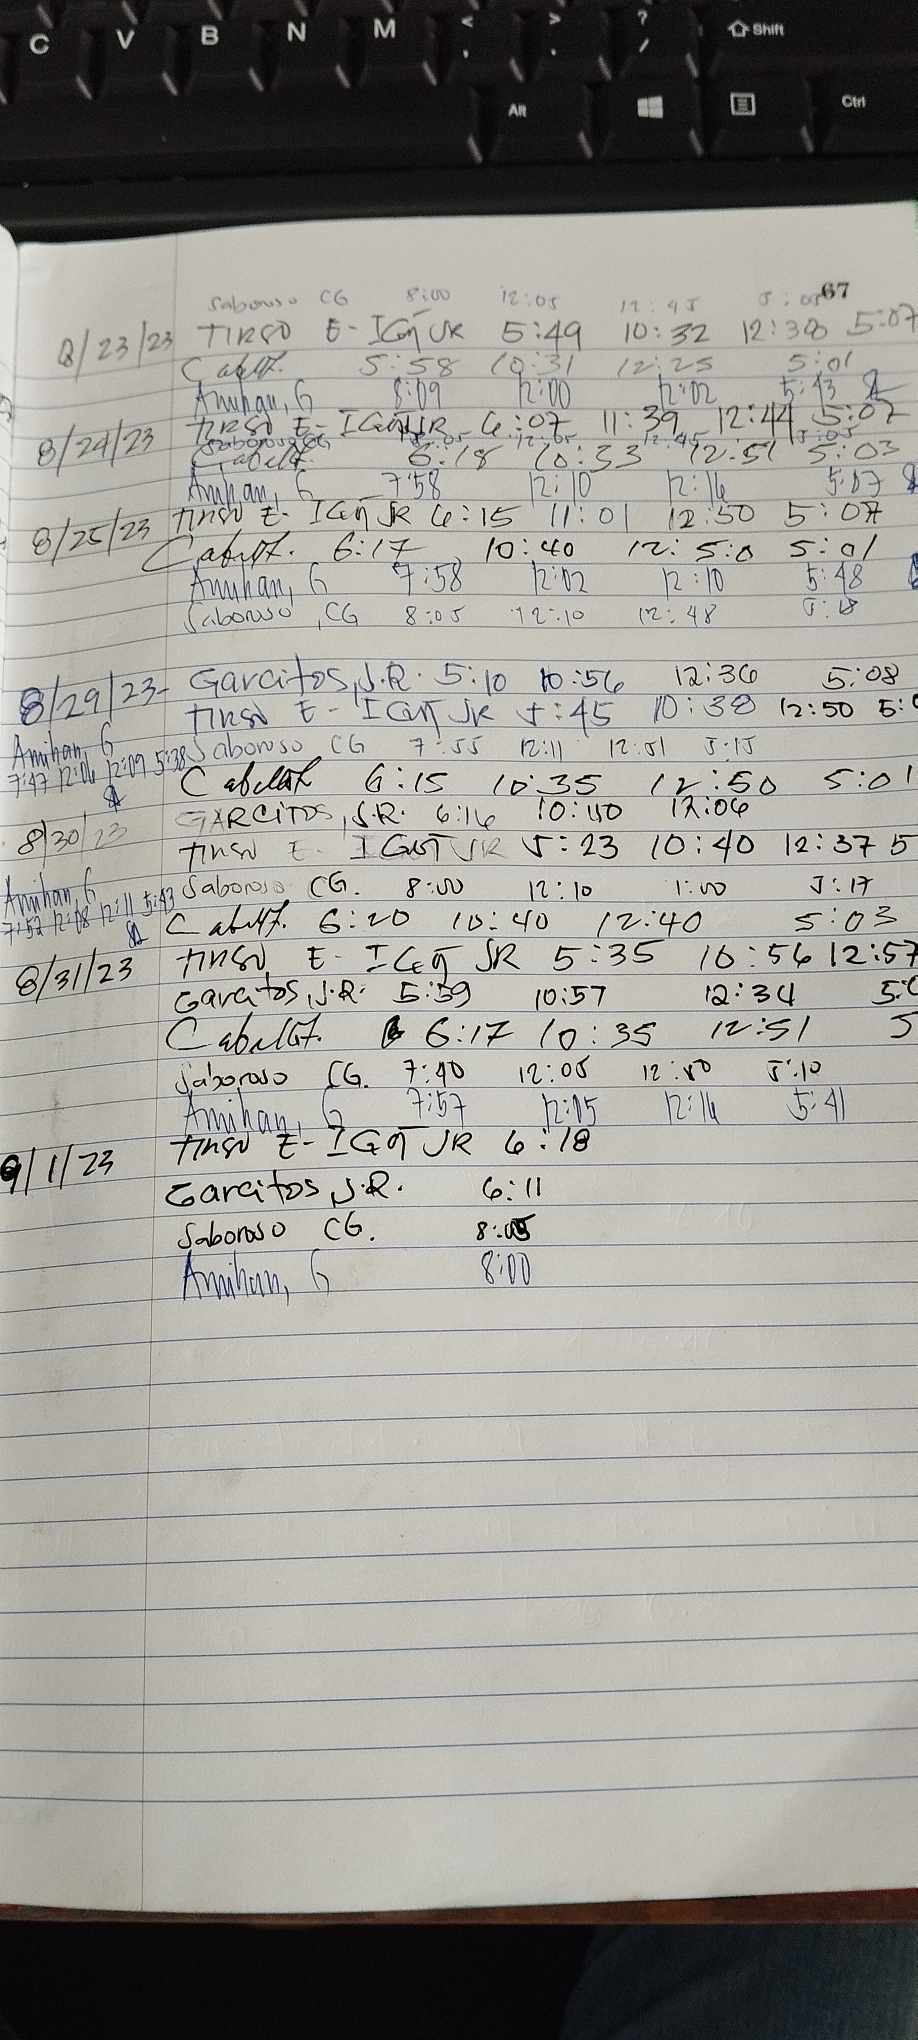 C V B N M < , > . ? / Shift
Alt Ctrl
67
Saboroso CG 8:00 12:05 12:45 5:05
8/23/23 TIRSO E- JR 5:49 10:32 12:38 5:07
5:58 10:31 12:25 5:01
Amihan, G 8:09 12:00 12:02 5:43
8/24/23 TIRSO E- JR 6:07 11:39 12:44 5:07
Saboroso CG 8:05 12:05 12:45 5:05
6:18 10:33 12:51 5:03
Amihan, G 7:58 12:10 12:16 5:07
8/25/23 TIRSO E- JR 6:15 11:01 12:50 5:07
6:17 10:40 12:5:0 5:01
Amihan, G 7:58 12:02 12:10 5:48
Saboroso, CG 8:05 12:10 12:48
8/29/23- Garcitos, J.R. 5:10 10:56 12:36 5:08
TIRSO E- JR 5:45 10:38 12:50
Amihan, G Saboroso CG 7:55 12:11 12:51 5:15
7:47 12:06 12:09 5:38
6:15 10:35 12:50 5:01
GARCITOS, J.R. 6:16 10:40 12:06
8/30/23 TIRSO E- JR 5:23 10:40 12:37 5
Amihan, G Saboroso CG. 8:00 12:10 1:00 5:17
7:52 12:08 12:11 5:43
6:20 10:40 12:40 5:03
8/31/23 TIRSO, E- JR 5:35 10:56 12:57
Garcitos, J.R. 5:59 10:57 12:34
6:17 10:35 12:51 5
Saboroso CG. 7:40 12:05 12:50 5:10
Amihan, G 7:57 12:15 12:16 5:41
9/1/23 TIRSO E- JR 6:18
Garcitos, J.R. 6:11
Saboroso CG. 8:05
Amihan, G 8:00